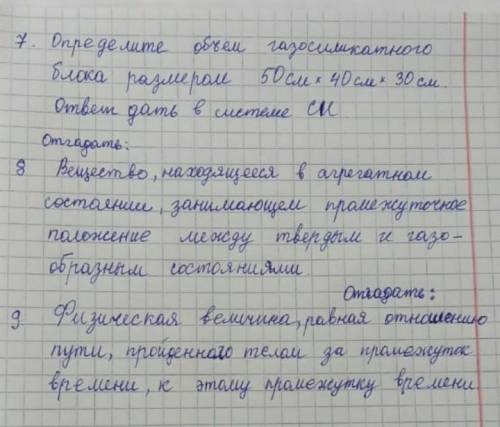 7. Определите объем газосиликатного
блока размером 50см × 40см × 30см.
Ответ дать в системе СИ
Отгадать:
8 Вещество, находящееся в агрегатном
состоянии, занимающем промежуточное
положение между твердым и газо-
образным состояниями.
Отгадать:
9. Физическая величина, равная отношению
пути, пройденного телом за промежуток
времени, к этому промежутку времени